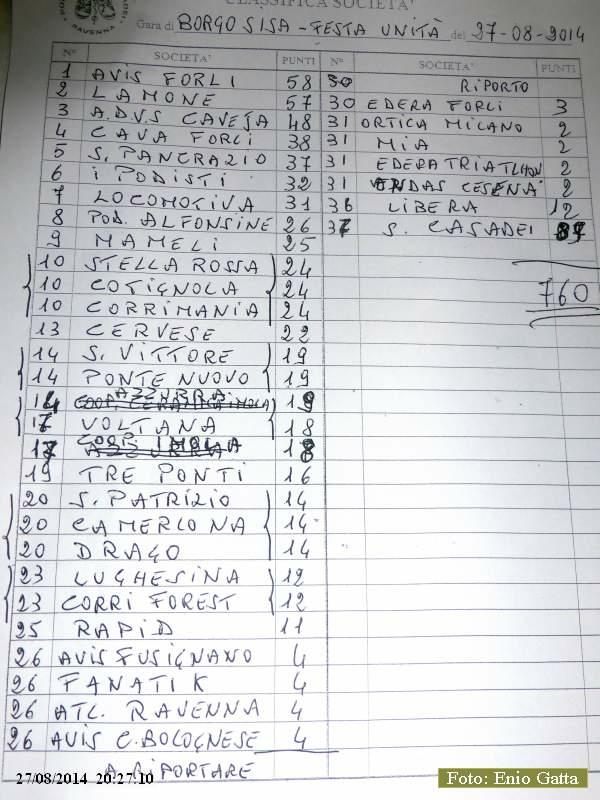 CLASSIFICA SOCIETA'
RAVENNA
Gara di BORGO SISA - FESTA UNITÀ del 27-08-2014
N° SOCIETA' PUNTI N° SOCIETA' PUNTI
1 AVIS FORLI 58 30 RIPORTO
2 LAMONE 57 30 EDERA FORLI 3
3 A.D.V.S CAVEJA 48 31 ORTICA MILANO 2
4 CAVA FORLI 38 31 MIA 2
5 S. PANCRAZIO 37 31 EDERA TRIATLHON 2
6 I PODISTI 32 31 ENDAS CESENA 2
7 LOCOMOTIVA 31 36 LIBERA 12
8 POD. ALFONSINE 26 37 S. CASADEI
9 MAMELI 25
10 STELLA ROSSA 24
10 COTIGNOLA 24 760
10 CORRIMANIA 24
13 CERVESE 22
14 S. VITTORE 19
14 PONTE NUOVO 19
AZZURRA
17 VOLTANA 18
17 IMOLA 18
19 TRE PONTI 16
20 S. PATRIZIO 14
20 CAMERLONA 14
20 DRAGO 14
23 LUGHESINA 12
23 CORRI FOREST 12
25 RAPID 11
26 AVIS FUSIGNANO 4
26 FANATIK 4
26 ATL. RAVENNA 4
26 AVIS C. BOLOGNESE 4
A RIPORTARE
27/08/2014 20:27:10
Foto: Enio Gatta